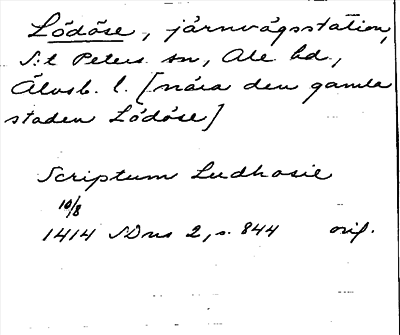 Lödöse, järnvägsstation,
S:t Peters sn, Ale hd.,
Älvsb. l. [nära den gamla
staden Lödöse]
Scriptum Ludhosie
10/8
1414 SDns 2, s. 844 orig.